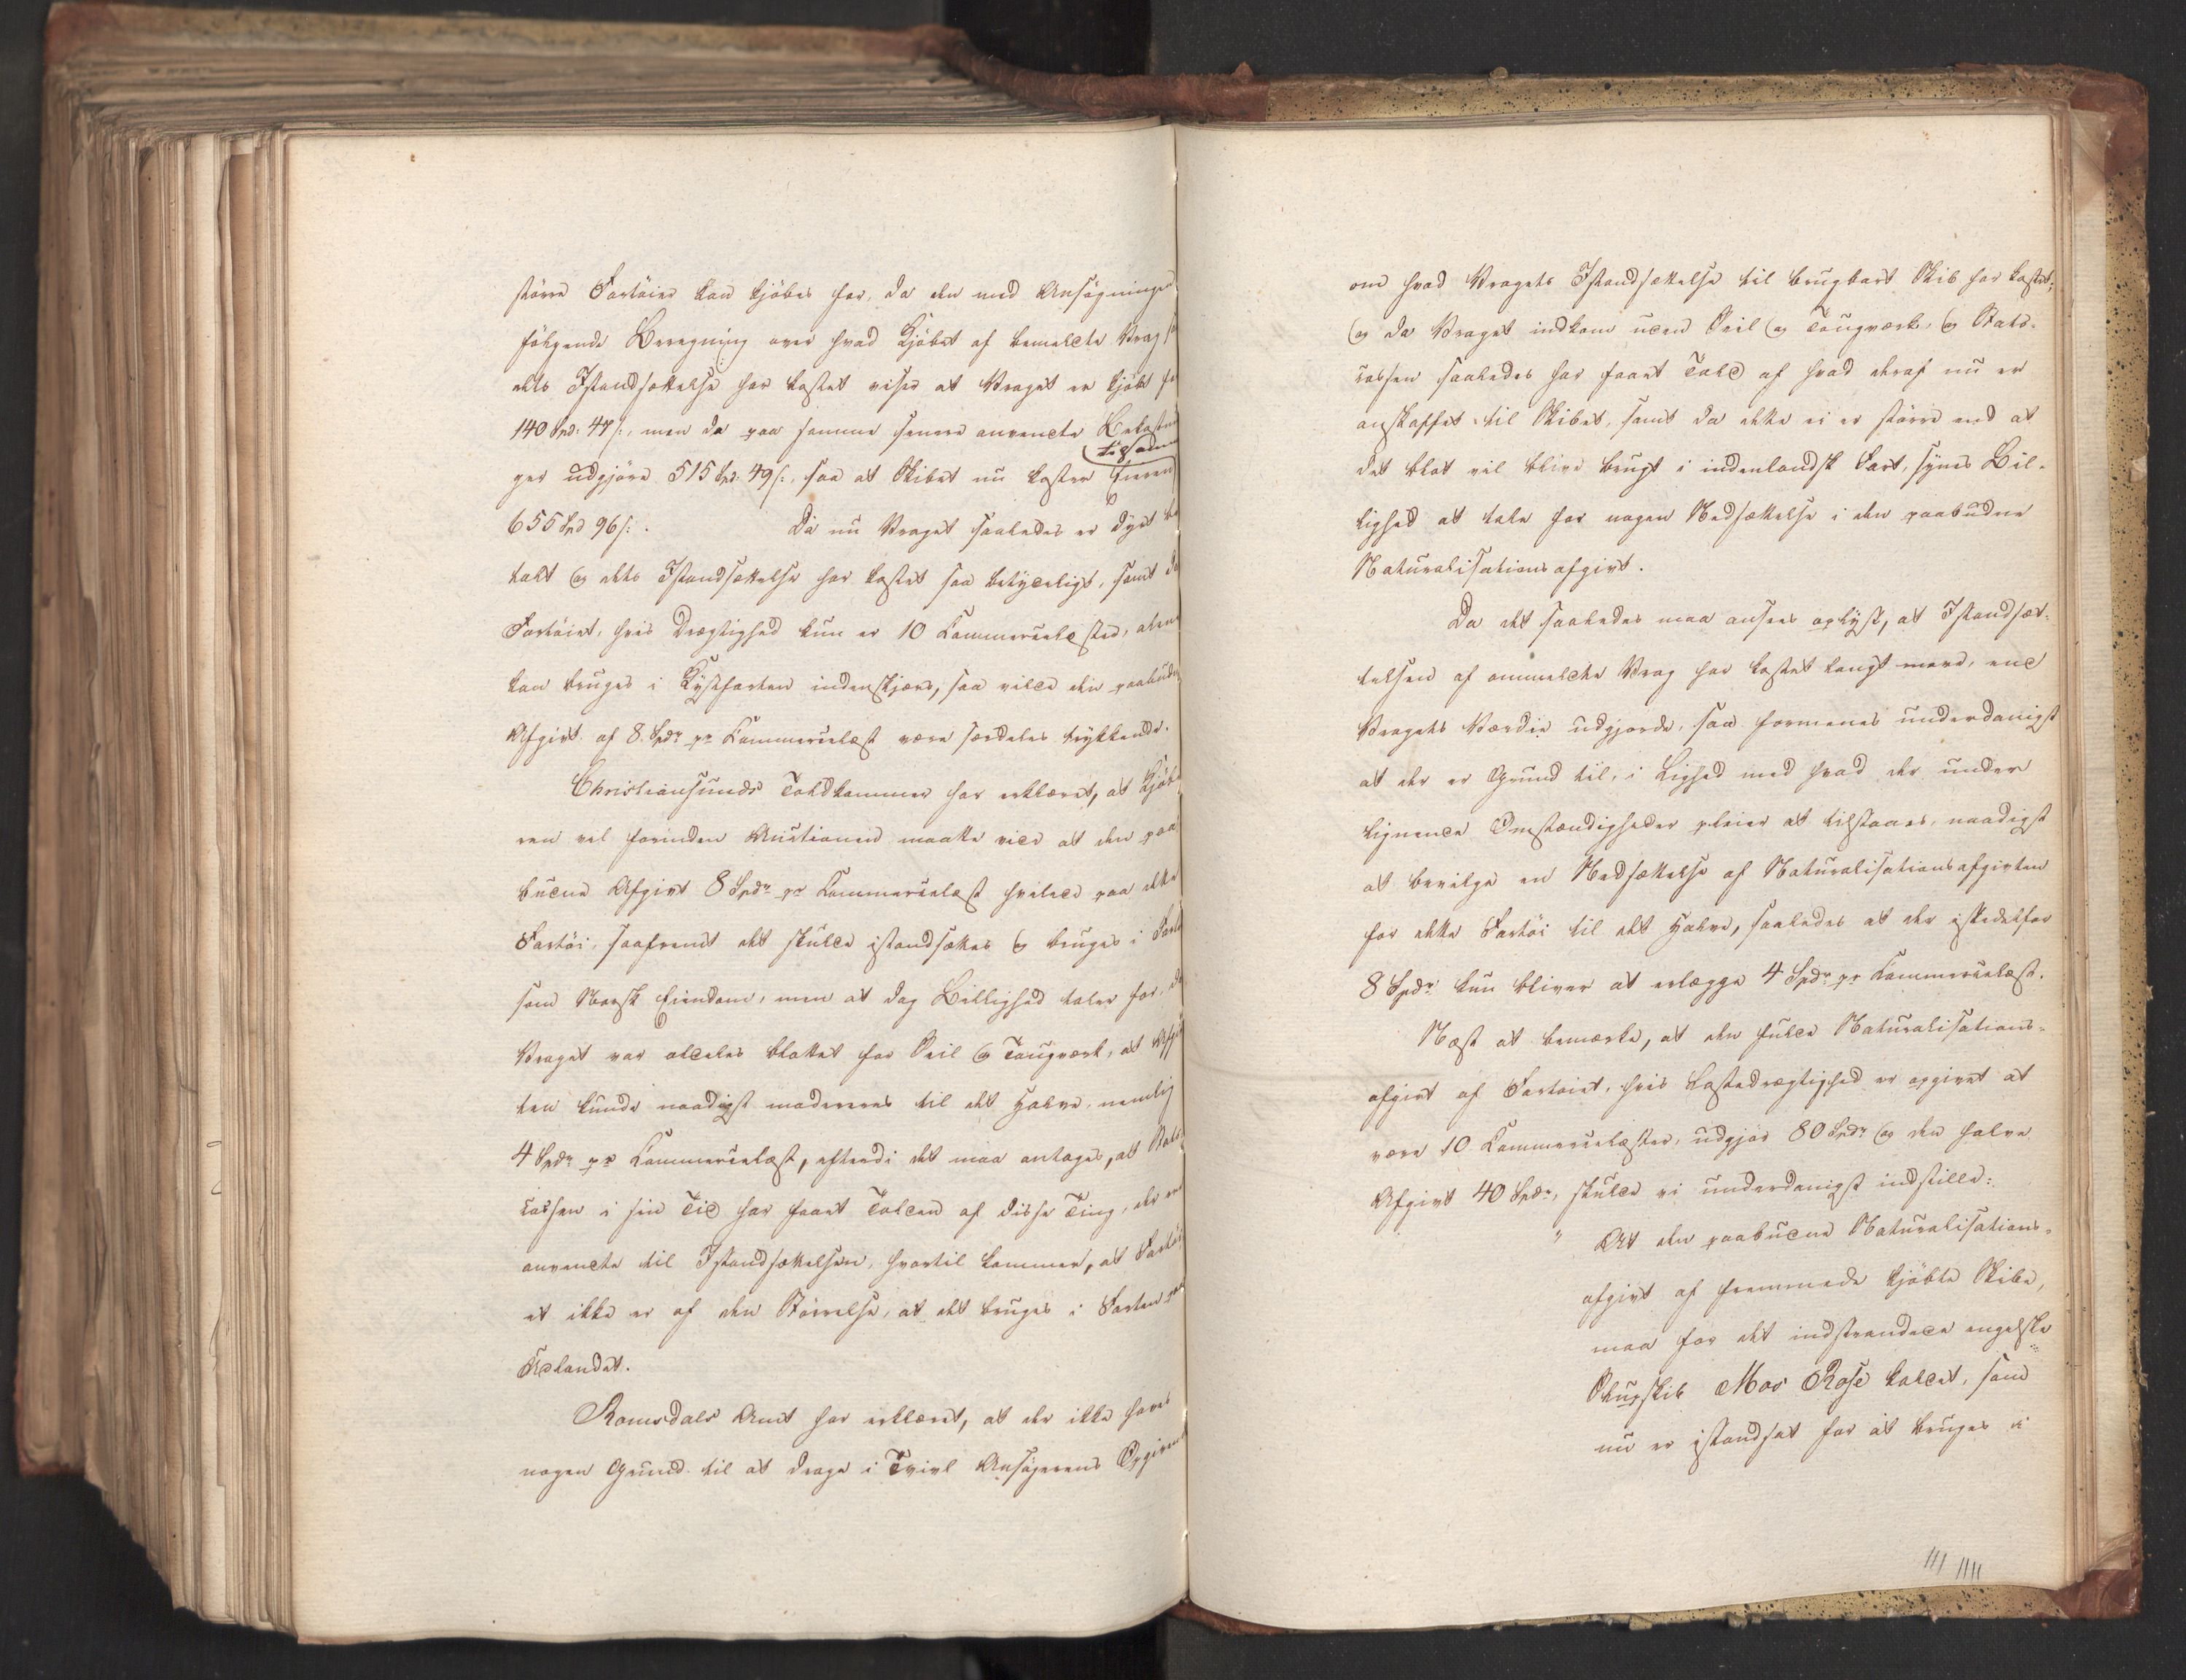 större Fartöier kan kjöbes for, da den med Ansögningen
fölgende Beregning over hvad Kjöbet af bemeldte Vrag
dets Istandsættelse har kostet viser at Vraget er kjöbt
140 Spd: 47 s:, men da paa samme senere anvendte Bekostnin
tilsam
ger udgjöre 515 Spd: 49 s:, saa at Skibet nu koster Eieren
655 Spd 96 s:. Da nu Vraget saaledes er dyrt be
talt og dets Istandsættelse har kostet saa betydeligt, samt da
Fartöiet, hvis Drægtighed kun er 10 Commerselæster, alene
kan bruges i Kystfarten indenskjærs, saa vilde den paabudne
Afgivt af 8. Spdr pr Commerselæst være særdeles trykkende.
Christiansunds Toldkammer har erklæret, at Kjöbe
ren vel forinden Auctionen maatte vide at den paa
budne Afgivt 8 Spdr pr Commerselæst hvilede paa dette
Fartöi, saafremt det skulde istandsættes og bruges i Fart
som Norsk Eiendom, men at dog Billighed taler for, da
Vraget var aldeles blottet for Seil og Tougværk, at Afgiv
ten kunde naadigst modereres til det Halve, nemlig
4 Spdr pr Commerselæst, eftersom det maa antages, at Stats
cassen i sin Tid har faaet Tolden af disse Ting, der ere
anvendte til Istandsættelsen, hvortil kommer, at Fartöi
et ikke er af den Störrelse, at det bruges i Farten paa
Udlandet.
Romsdals Amt har erklæret, at der ikke haves
nogen Grund til at drage i Tvivl Ansögerens Opgivende
om hvad Vragets Istandsættelse til brugbart Skib har kostet;
og da Vraget indkom uden Seil og Tougværk, og Stats-
cassen saaledes har faaet Told af hvad deraf nu er
anskaffet til Skibet, samt da dette ei er större end at
det blot vil blive brugt i indenlandsk Fart, synes Bil-
lighed at tale for nogen Nedsættelse i den paabudne
Naturalisationsafgivt.
Da det saaledes maa ansees oplyst, at Istandsæt-
telsen af ommeldte Vrag har kostet langt mere, end
Vragets Værdie udgjorde, saa formenes underdanigst
at der er Grund til, i Lighed med hvad der under
lignende Omstændigheder pleier at tilstaaes, naadigst
at bevilge en Nedsættelse af Naturalisationsafgivten
for dette Fartöi til det Halve, saaledes at der istedetfor
8 Spdr kun bliver at erlægge 4 Spdr pr Commerselæst.
Næst at bemærke, at den fulde Naturalisations-
afgivt af Fartöiet, hvis Læstedrægtighed er opgivet at
være 10 Commerselæster, udgjör 80 Spdr og den halve
Afgivt 40 Spdr, skulde vi underdanigst indstille:
" At den paabudne Naturalisations-
afgivt af fremmede kjöbte Skibe,
maa for det indstrandede engelske
Slupskib Mos Rose kaldet, som
nu er istandsat for at bruges i